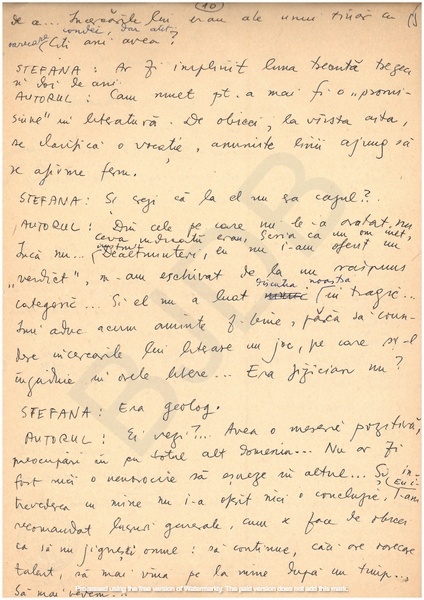 10
de a... Încercările lui erau ale unui tînăr cu
condei, dar atît.
oarecare Cîți ani avea?
ȘTEFANA: Ar fi împlinit luna trecută treizeci
și doi de ani.
AUTORUL: Cam mult pt. a mai fi o „promi-
siune" în literatură. De obicei, la vîrsta asta,
se clarifică o vocație, anumite linii ajung să
se afirme ferm.
ȘTEFANA: Și crezi că la el nu era cazul?
AUTORUL: Din cele pe care mi le-a arătat, nu
încă nu... ceva indicații erau, scria ca un om
instruit Dealtminteri, eu nu i-am oferit un
„verdict", m-am eschivat de la un răspuns
categoric... Și el nu a luat discuția noastră în tragic...
Îmi aduc acum aminte f. bine, părea să consi-
dere încercările lui literare un joc, pe care și-l
îngăduie în orele libere... Era fizician nu?
ȘTEFANA: Era geolog.
AUTORUL: Ei vezi?... Avea o meserie pozitivă,
preocupări în cu totul alt domeniu... Nu ar fi
fost nici o nenorocire să eșueze în altul... Și în-
trevederea cu mine nu i-a oferit nici o concluzie. I-am
recomandat lucruri generale, cum se face de obicei
ca să nu jignești omul: să continue, căci are oarecare
talent, să mai vină pe la mine după un timp...
Să mai vedem...
BULB
Processed using the free version of Watermarkly. The paid version does not add this mark.